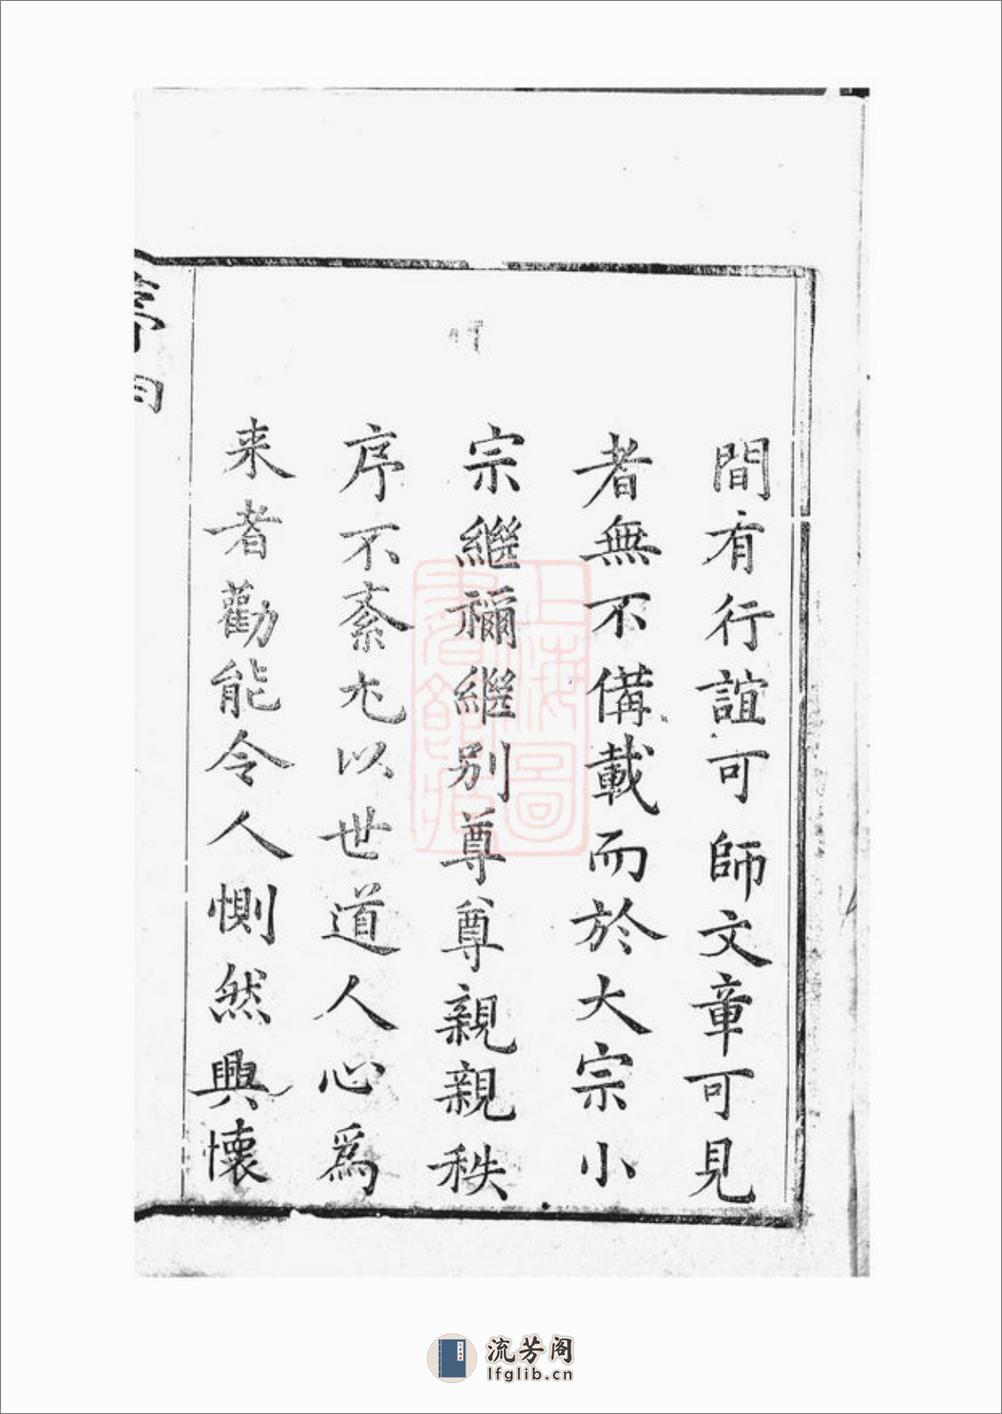 間有行誼可師文章可見
者無不備載而於大宗小
宗繼禰繼别尊尊親親秩
序不紊尤以世道人心爲
来者勸能令人惻然興懷
上海圖
書館藏
流芳阁
lfglib.cn